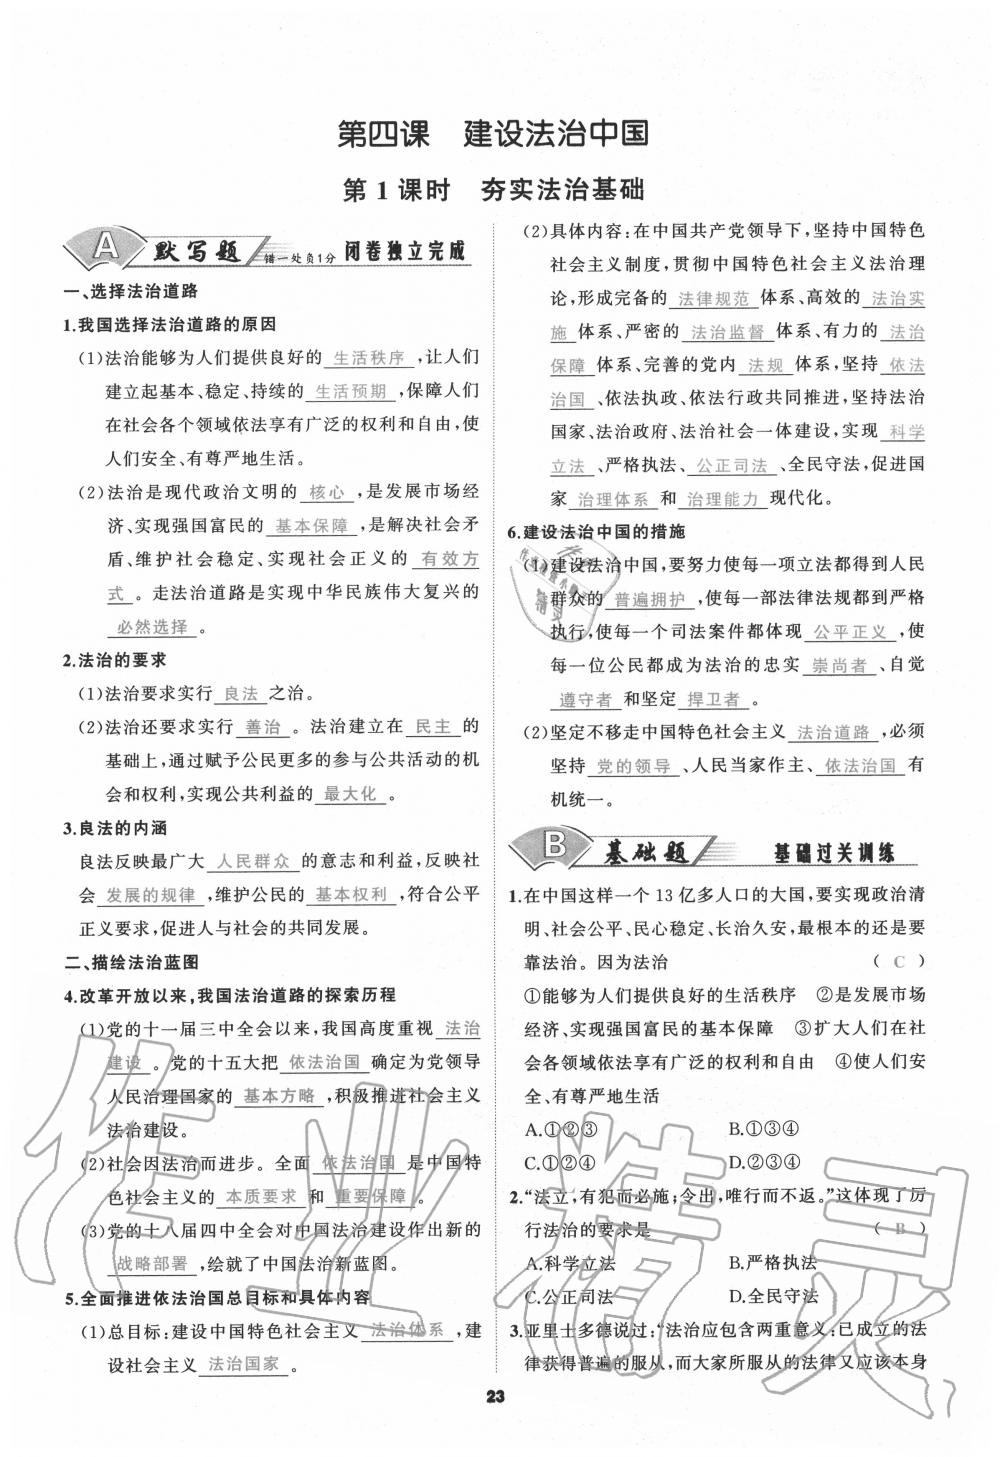 第四课　建设法治中国
第1课时　夯实法治基础
A 默写题 错一处负1分 闭卷独立完成
一、选择法治道路
1.我国选择法治道路的原因
(1)法治能够为人们提供良好的 生活秩序 ,让人们
建立起基本、稳定、持续的 生活预期 ,保障人们
在社会各个领域依法享有广泛的权利和自由,使
人们安全、有尊严地生活。
(2)法治是现代政治文明的 核心 ,是发展市场经
济、实现强国富民的 基本保障 ,是解决社会矛
盾、维护社会稳定、实现社会正义的 有效方
式 。走法治道路是实现中华民族伟大复兴的
必然选择 。
2.法治的要求
(1)法治要求实行 良法 之治。
(2)法治还要求实行 善治 。法治建立在 民主 的
基础上,通过赋予公民更多的参与公共活动的机
会和权利,实现公共利益的 最大化 。
3.良法的内涵
良法反映最广大 人民群众 的意志和利益,反映社
会 发展的规律 ,维护公民的 基本权利 ,符合公平
正义要求,促进人与社会的共同发展。
二、描绘法治蓝图
4.改革开放以来,我国法治道路的探索历程
(1)党的十一届三中全会以来,我国高度重视 法治
建设 。党的十五大把 依法治国 确定为党领导
人民治理国家的 基本方略 ,积极推进社会主义
法治建设。
(2)社会因法治而进步。全面 依法治国 是中国特
色社会主义的 本质要求 和 重要保障 。
(3)党的十八届四中全会对中国法治建设作出新的
战略部署 ,绘就了中国法治新蓝图。
5.全面推进依法治国总目标和具体内容
(1)总目标:建设中国特色社会主义 法治体系 ,建
设社会主义 法治国家 。
(2)具体内容:在中国共产党领导下,坚持中国特色
社会主义制度,贯彻中国特色社会主义法治理
论,形成完备的 法律规范 体系、高效的 法治实
施 体系、严密的 法治监督 体系、有力的 法治
保障 体系、完善的党内 法规 体系,坚持 依法
治国 、依法执政、依法行政共同推进,坚持法治
国家、法治政府、法治社会一体建设,实现 科学
立法 、严格执法、 公正司法 、全民守法,促进国
家 治理体系 和 治理能力 现代化。
6.建设法治中国的措施
(1)建设法治中国,要努力使每一项立法都得到人民
群众的 普遍拥护 ,使每一部法律法规都得到严格
执行,使每一个司法案件都体现 公平正义 ,使
每一位公民都成为法治的忠实 崇尚者 、自觉
遵守者 和坚定 捍卫者 。
(2)坚定不移走中国特色社会主义 法治道路 ,必须
坚持 党的领导 、人民当家作主、 依法治国 有
机统一。
B 基础题 基础过关训练
1.在中国这样一个13亿多人口的大国,要实现政治清
明、社会公平、民心稳定、长治久安,最根本的还是要
靠法治。因为法治 ( C )
①能够为人们提供良好的生活秩序　②是发展市场
经济、实现强国富民的基本保障　③扩大人们在社
会各领域依法享有广泛的权利和自由　④使人们安
全、有尊严地生活
A.①②③　B.①③④
C.①②④　D.②③④
2.“法立,有犯而必施;令出,唯行而不返。”这体现了厉
行法治的要求是 ( B )
A.科学立法　B.严格执法
C.公正司法　D.全民守法
3.亚里士多德说过:“法治应包含两重意义:已成立的法
律获得普遍的服从,而大家所服从的法律又应该本身
23
作业精灵